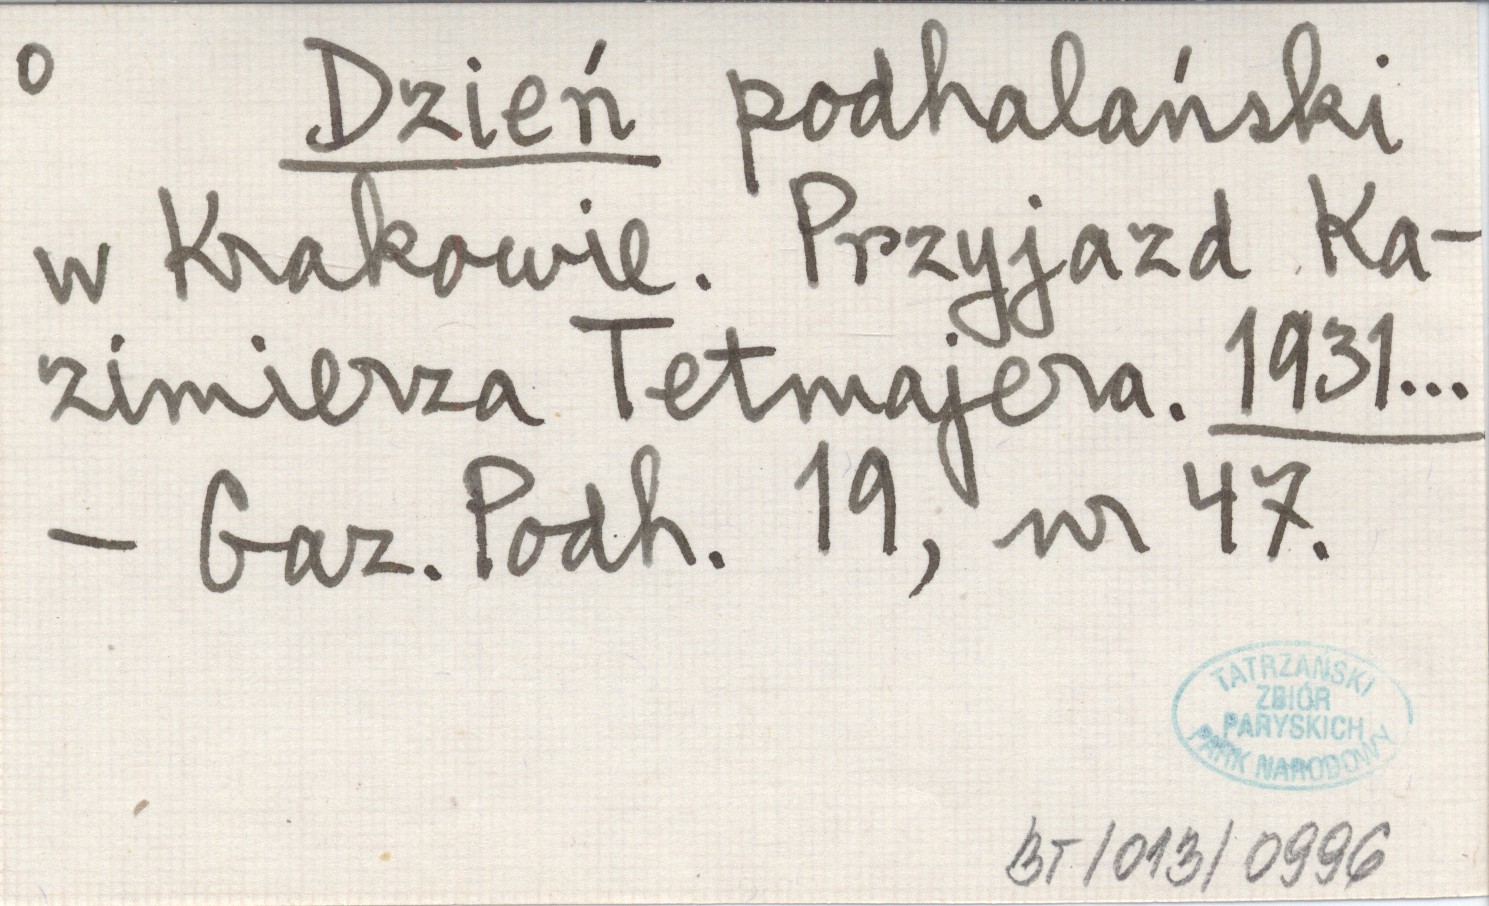 o Dzień podhalański
w Krakowie. Przyjazd Ka-
zimierza Tetmajera. 1931...
— Gaz. Podh. 19, nr 47.
TATRZAŃSKI
ZBIÓR
PARYSKICH
PARK NARODOWY
BT/013/0996